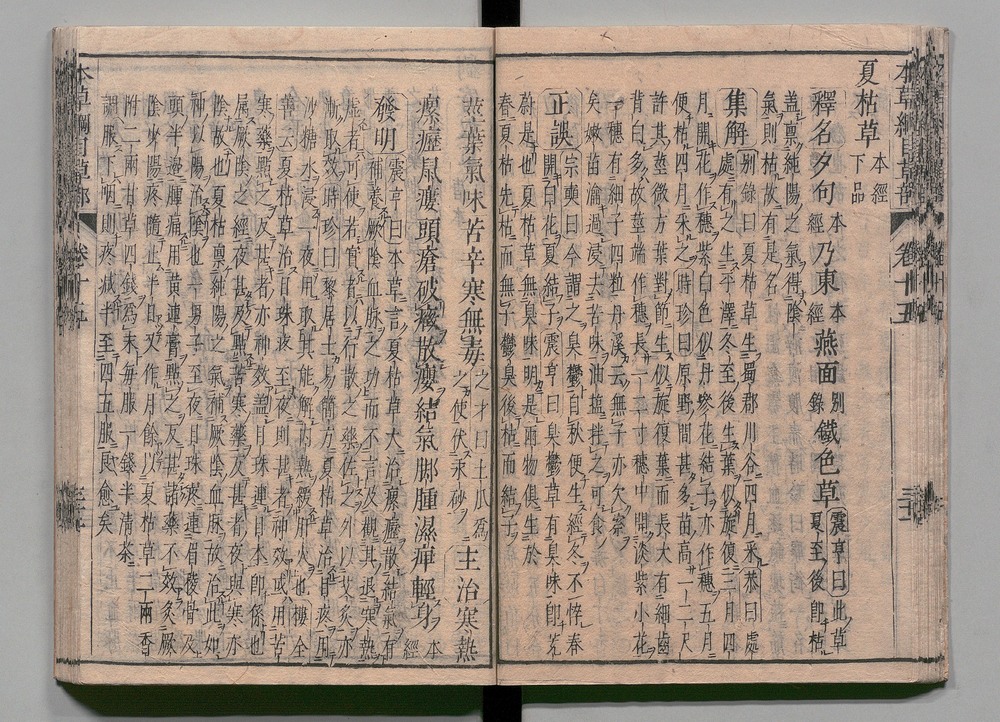 夏枯草 本經下品
釋名夕句 本經 乃東 本經 燕面 別錄 鐵色草 震亨曰此草夏至後即枯
蓋稟純陽之氣得陰
氣則枯故有是名
集解 別錄曰夏枯草生蜀郡川谷四月采恭曰處
處有之生平澤冬至後生葉似旋復三月四
月開花作穗紫白色似丹參花結子亦作穗五月
便枯四月采之時珍曰原野間甚多苗高一二尺
許其莖微方葉對節生似旋復葉而長大有細齒
背白多紋莖端作穗長一二寸穗中開淡紫小花
一穗有細子四粒丹溪云無子亦欠察
矣嫩苗瀹過浸去苦味油鹽拌之可食
正誤 宗奭曰今謂之臭鬱自秋便生經冬不悴春
開白花夏結子震亨曰臭鬱有臭味即茺
蔚是也夏枯草無臭味明是兩物俱生於
春夏枯先枯而無子鬱臭後枯而結子
莖葉氣味苦辛寒無毒 之才曰土瓜爲之使伏汞砂 主治寒熱
瘰癧鼠瘻頭瘡破癥散癭結氣脚腫濕痺輕身 本經
發明 震亨曰本草言夏枯草大治瘰癧散結氣有
補養厥陰血脉之功而不言及觀其退寒熱
虛者可使若實者以行散之藥佐之外以艾灸亦
漸取效時珍曰黎居士易簡方夏枯草治目疼用
沙糖水浸一夜用取其能解內熱緩肝火也樓全
善云夏枯草治目珠疼至夜則甚者神效或用苦
寒藥點之反甚者亦神效蓋目珠連目本即係也
屬厥陰之經夜甚及點苦寒藥反甚者夜與寒亦
陰故也夏枯稟純陽之氣補厥陰血脉故治此如
神以陽治陰也一男子至夜目珠疼連眉稜骨及
頭半邊腫痛用黃連膏點之反甚諸藥不效灸厥
陰少陽疼隨止半日又作月餘以夏枯草二兩香
附二兩甘草四錢爲末每服一錢半清茶
調服下咽則疼減半至四五服良愈矣